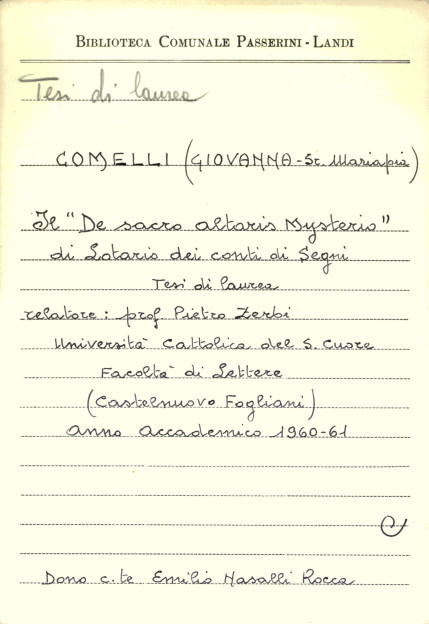 BIBLIOTECA COMUNALE PASSERINI - LANDI
Tesi di laurea
COMELLI (GIOVANNA - Sr. Mariapia)
Il "De sacro altaris Mysterio"
di Lotario dei conti di Segni
Tesi di laurea
relatore: prof. Pietro Zerbi
Università Cattolica del S. Cuore
Facoltà di Lettere
(Castelnuovo Fogliani)
anno accademico 1960-61
Dono c.te Emilio Nasalli Rocca